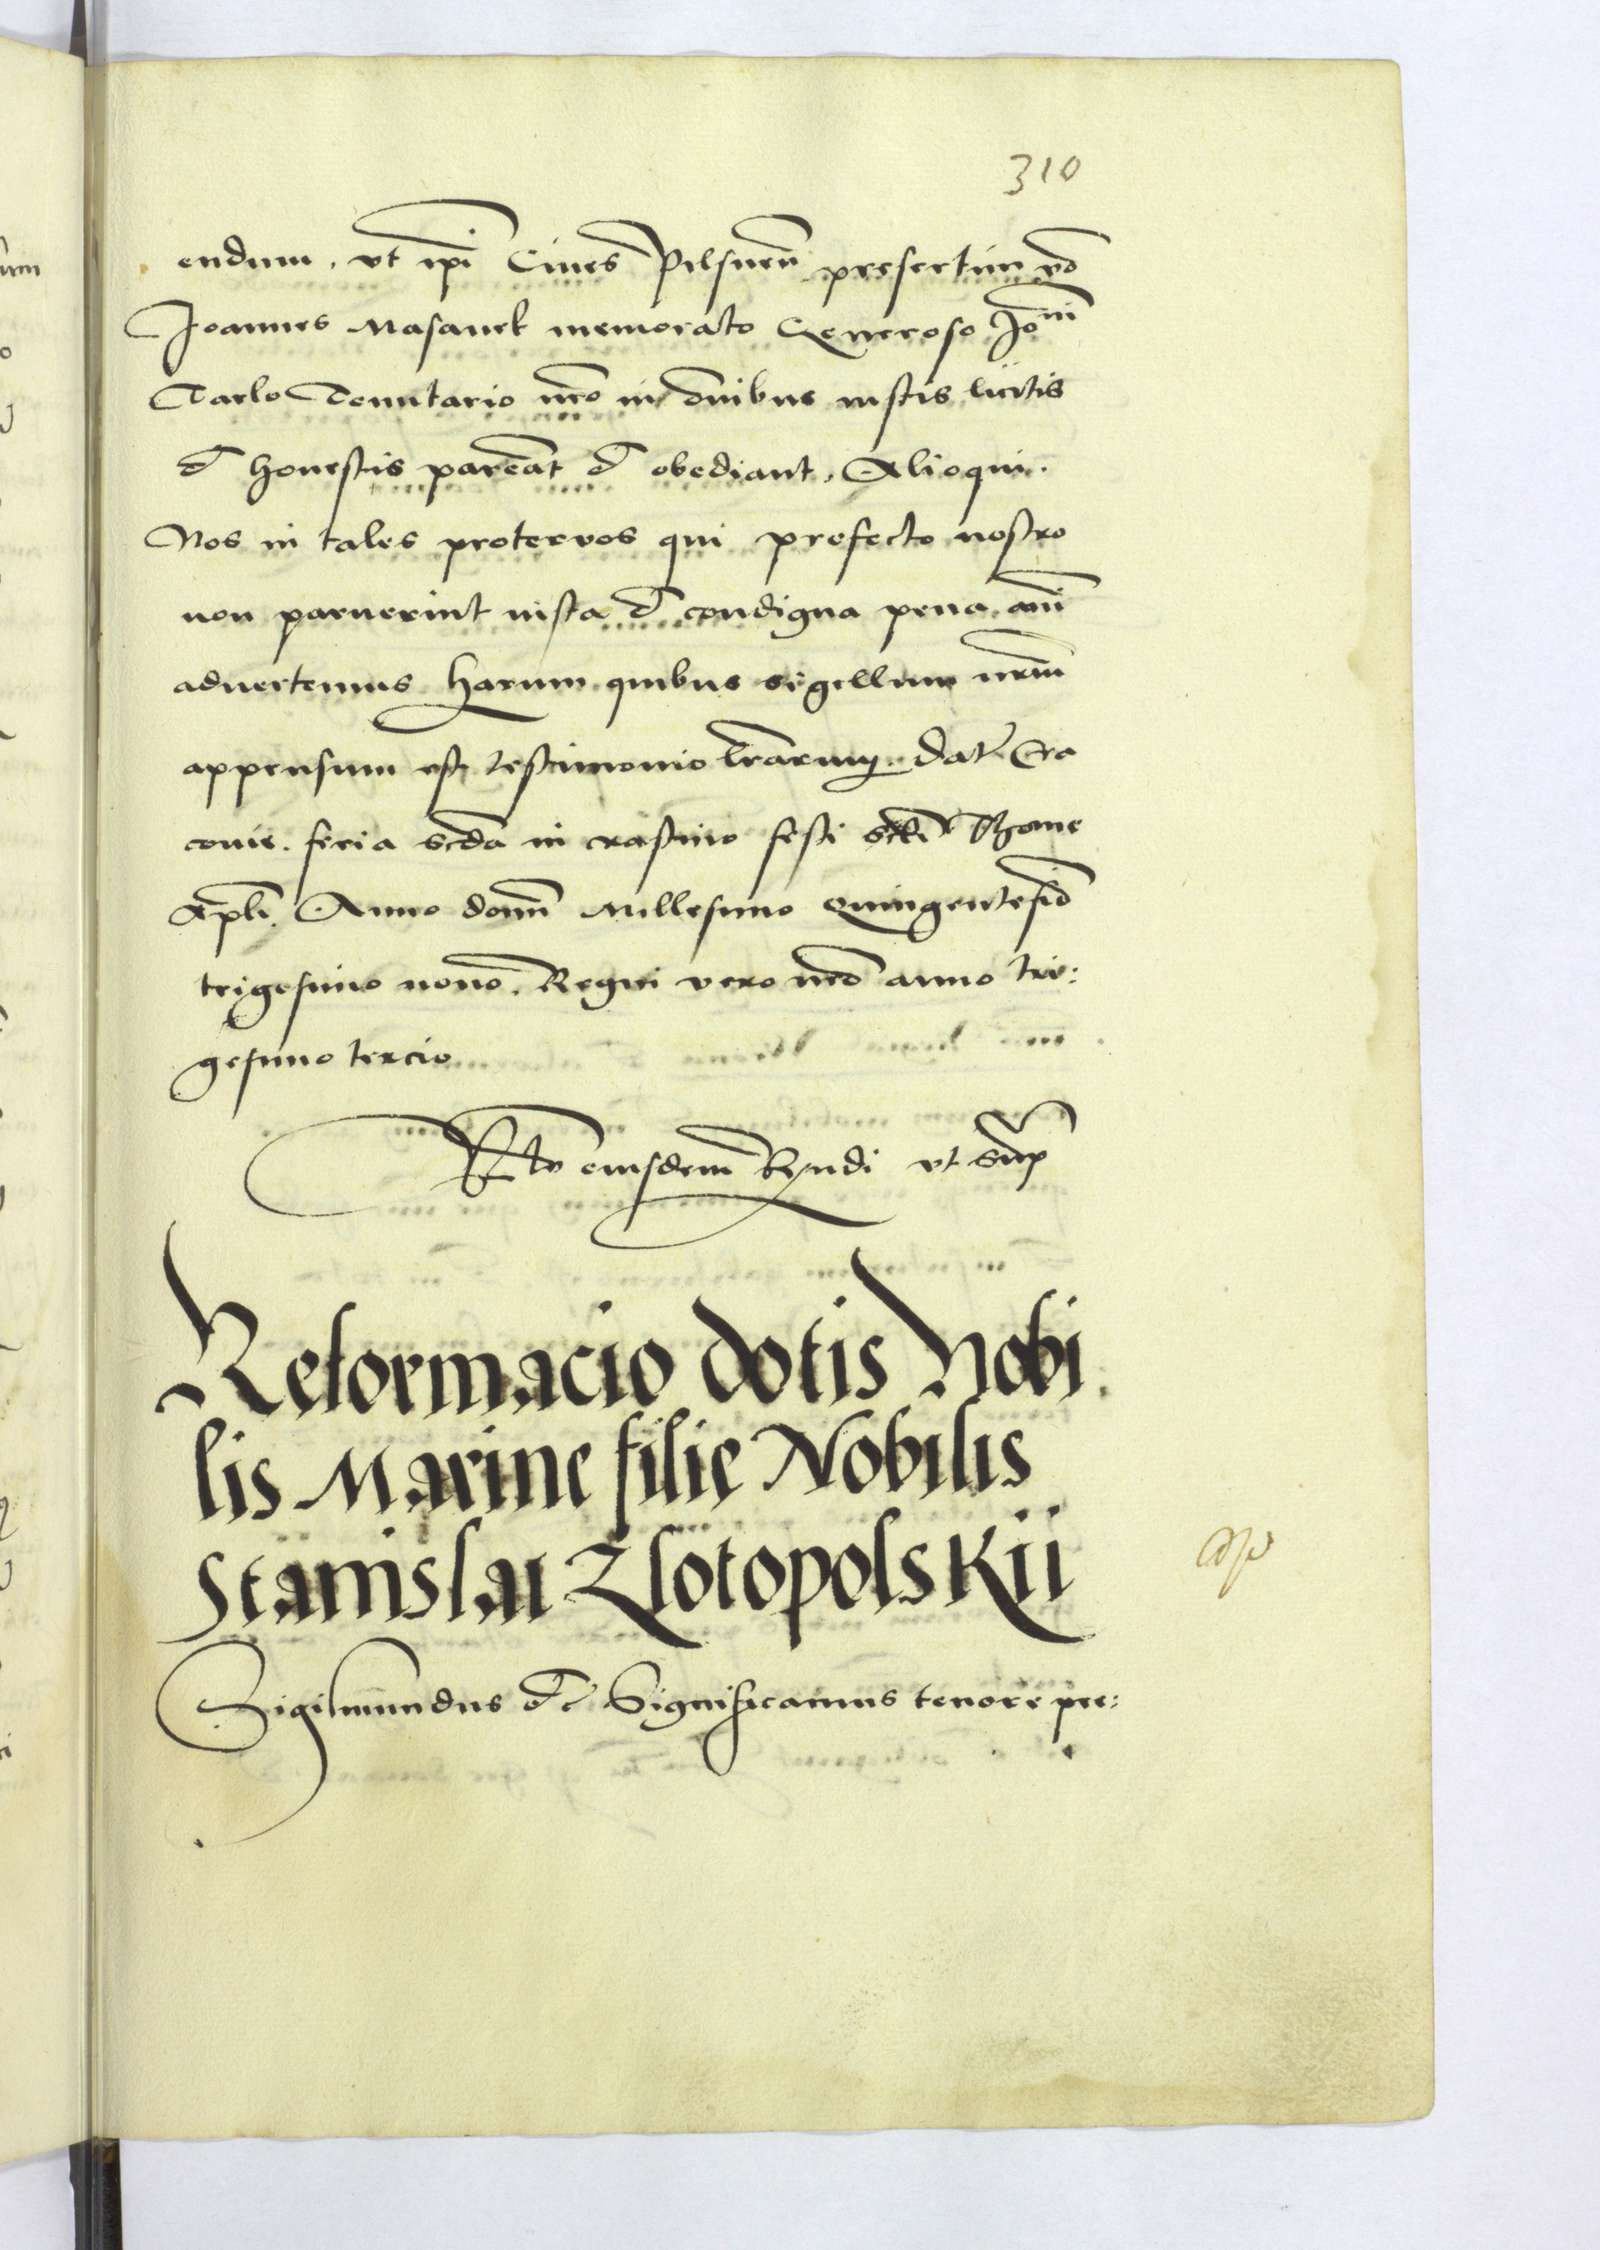 310
endum, vt ipi Ciues Pilsnen presertim v̄o
Joannes Masanek memorato Generoso Joni
Tarlo Tenutario nro in oībus iustis licitis
et honestis pareāt et obediant, Alioqui.
Nos in tales proteruos qui prefecto nostro
non paruerint iusta et condigna pena ani
aduertemus harum quibus sigellum nrm
appensum est testimonio lrarum. Dat Cra
couie. feria scda in crastino festi scti Thome
Apli. Anno domi Millesimo Quingentesio
trigesimo nono. Regni vero nro anno tri:
gesimo tercio
Rlo eiusdem Rndi vt sup
Reformacio dotis Nobi
lis Marine filię Nobilis
Stanislai Zlotopolskii
Sigismundus etc Significamus tenore pre: